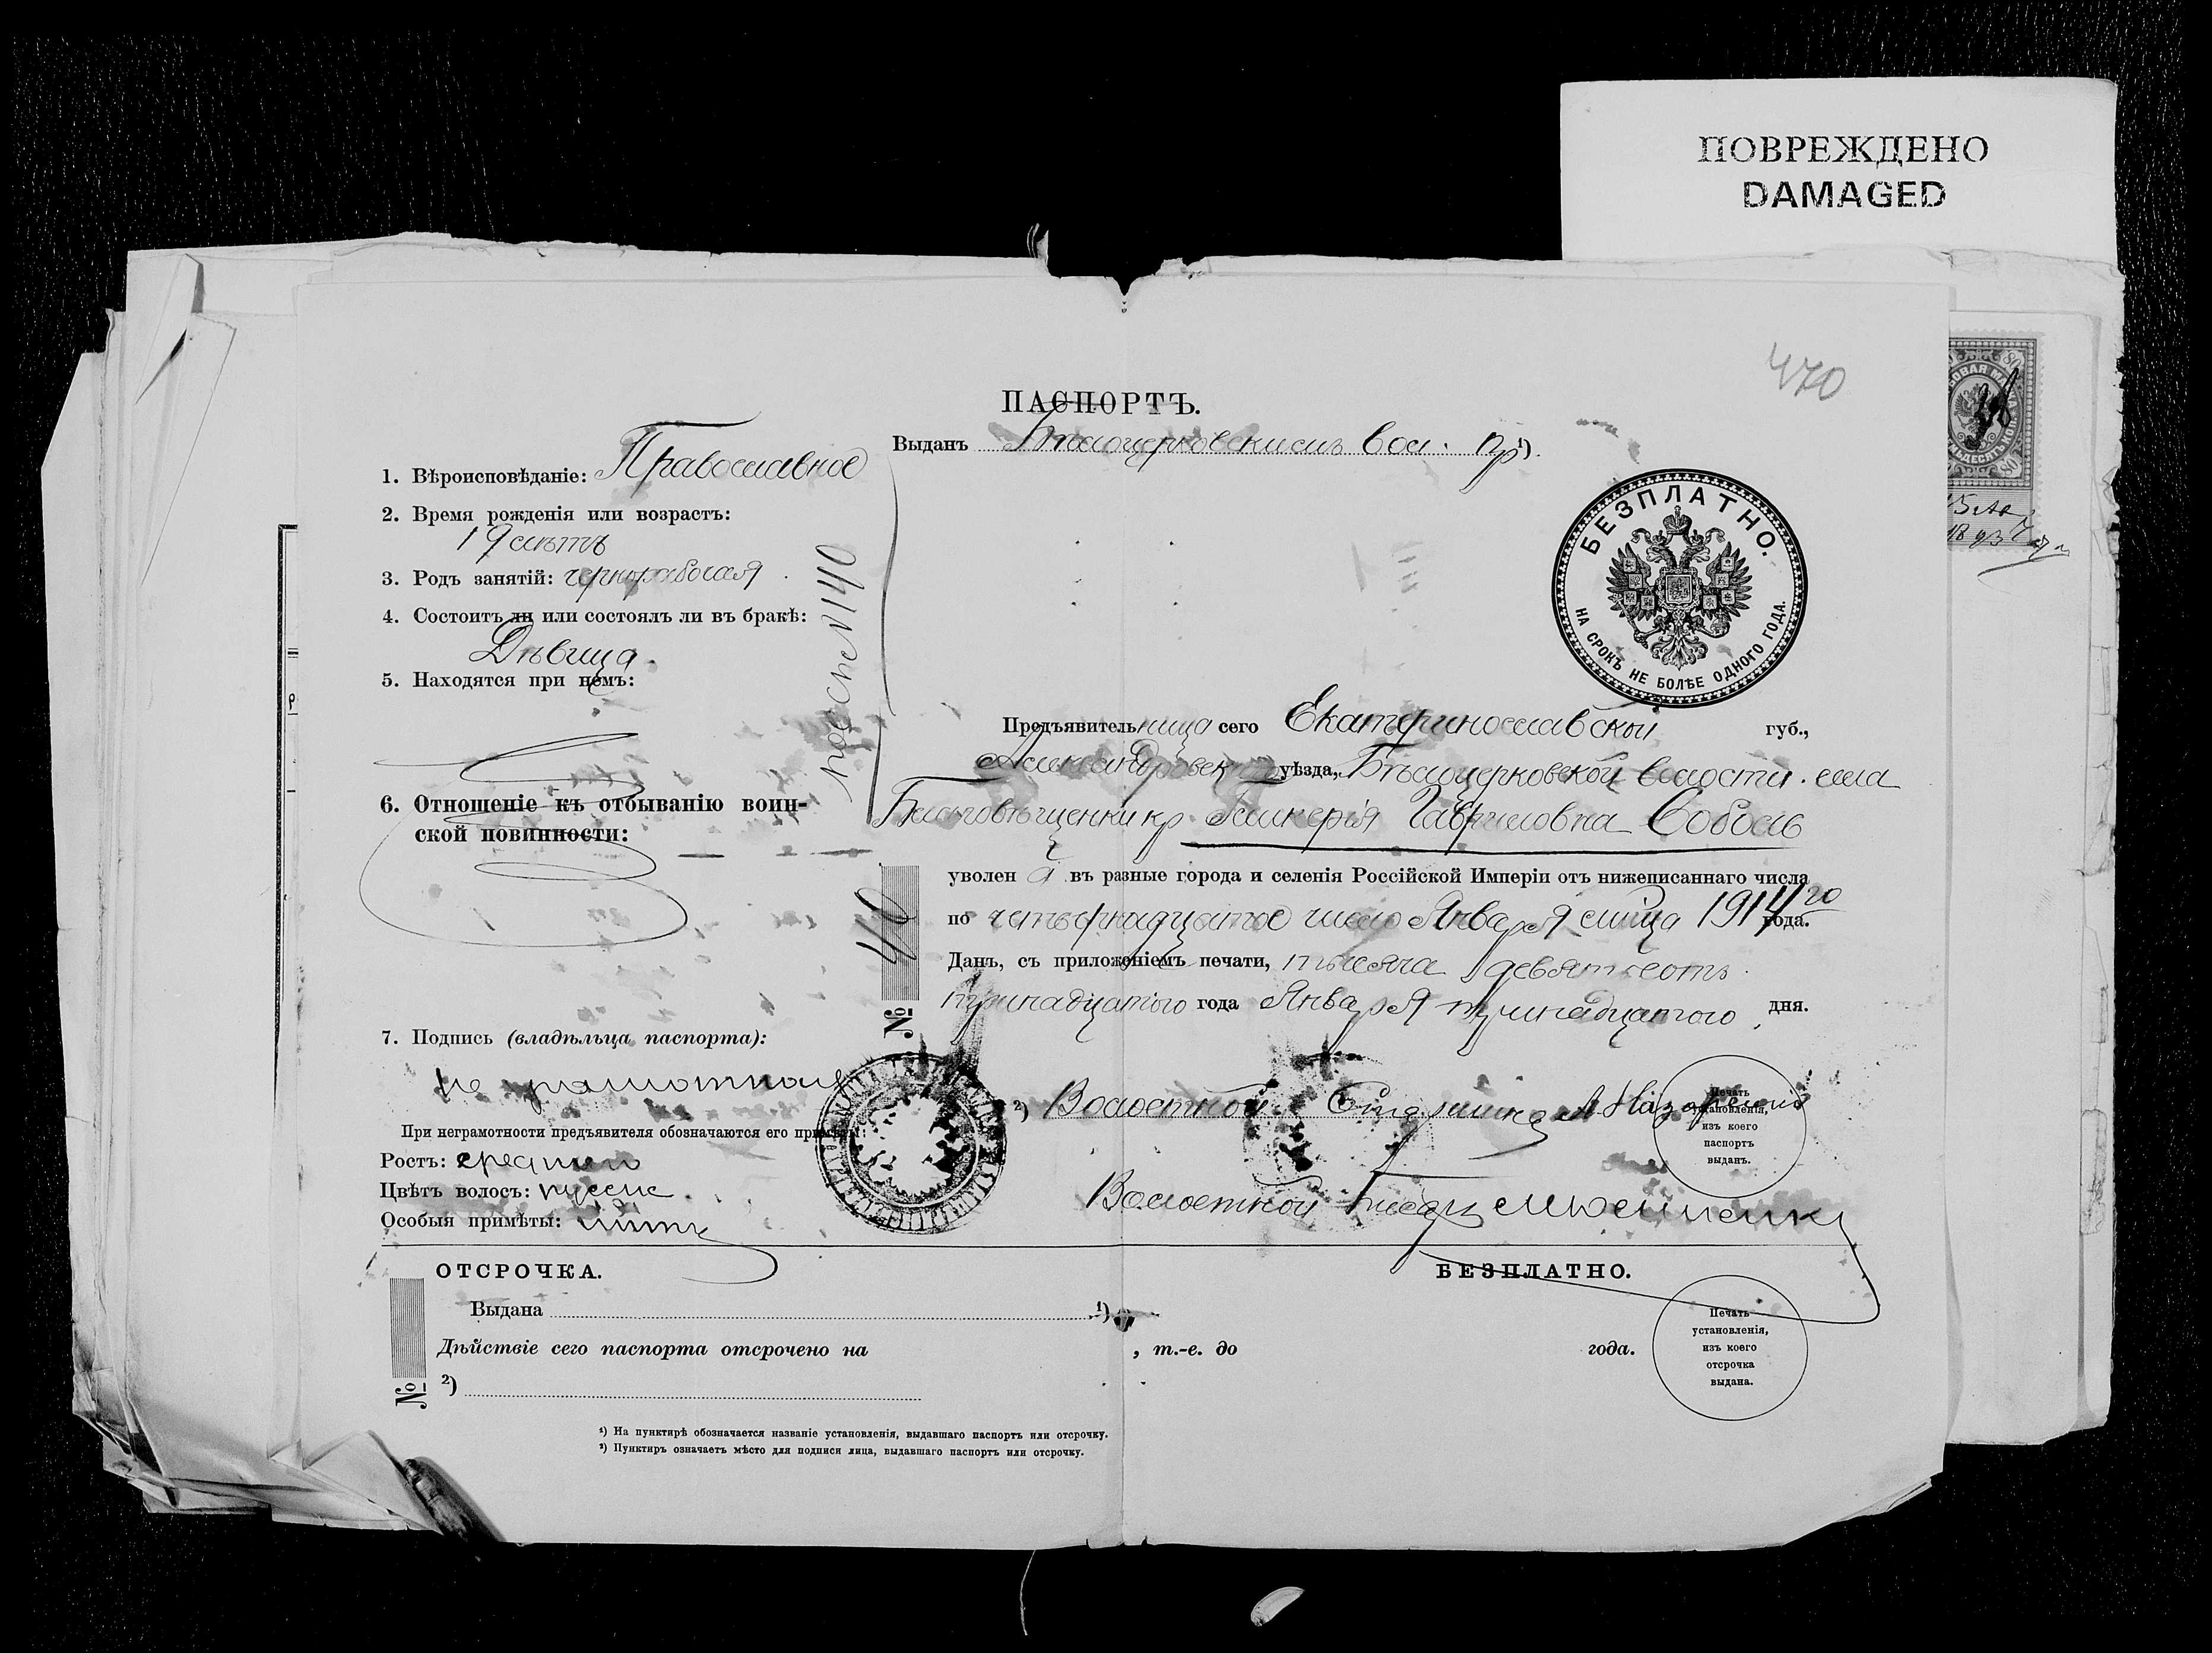 ПОВРЕЖДЕНО
DAMAGED
470
ПАСПОРТЪ.
Выданъ Бѣлоцерковскимъ вол. пр. ¹).
1. Вѣроисповѣданіе: Православное
2. Время рожденія или возрастъ:
19 лѣтъ
3. Родъ занятій: чернорабочая
4. Состоитъ ли или состоялъ ли въ бракѣ:
Дѣвица.
5. Находятся при немъ:
6. Отношеніе къ отбыванію воин-
ской повинности:
№ 140
БЕЗПЛАТНО.
НА СРОКЪ НЕ БОЛѢЕ ОДНОГО ГОДА.
Предъявительница сего Екатеринославской губ.,
Александровск уѣзда, Бѣлоцерковской волости. села
кр. Гликерія Гавриловна Соболь
уволена въ разные города и селенія Россійской Имперіи отъ нижеписаннаго числа
по четырнадцатое число Января мѣсца 1914 года.
Данъ, съ приложеніемъ печати, тысяча девятьсотъ
тринадцатого года Января тринадцатого дня.
№ 40
7. Подпись (владѣльца паспорта):
не грамотная
При неграмотности предъявителя обозначаются его примѣты:
Ростъ: средний
Цвѣтъ волосъ: русые
Особыя примѣты: нѣтъ
²) Волостной Старшина А Назаренко
Волостной Писарь
Печать
установленія,
изъ коего
паспортъ
выданъ.
ОТСРОЧКА.
БЕЗПЛАТНО.
Выдана ¹)
Дѣйствіе сего паспорта отсрочено на , т.-е. до года.
№ ²)
Печать
установленія,
изъ коего
отсрочка
выдана.
¹) На пунктирѣ обозначается названіе установленія, выдавшаго паспортъ или отсрочку.
²) Пунктиръ означаетъ мѣсто для подписи лица, выдавшаго паспортъ или отсрочку.
80